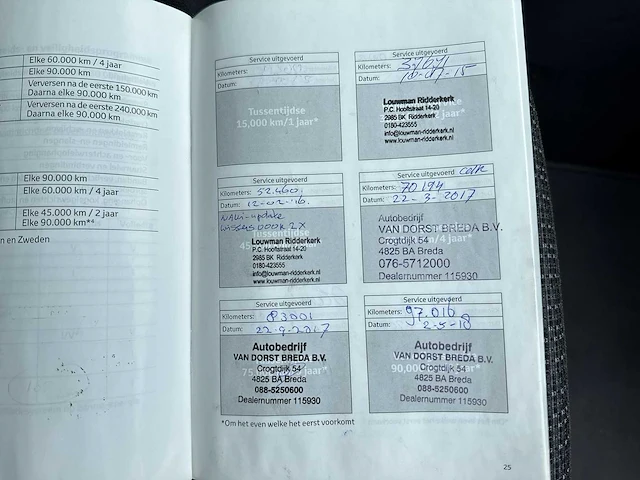 Elke 60.000 km / 4 jaar
Elke 90.000 km
Verversen na de eerste 150.000 km
Daarna elke 90.000 km
Verversen na de eerste 240.000 km
Daarna elke 90.000 km
Elke 90.000 km
Elke 60.000 km / 4 jaar
Elke 45.000 km / 2 jaar
Elke 90.000 km*⁴
n en Zweden
Service uitgevoerd
Kilometers:
Datum:
Tussentijdse
15,000 km/1 jaar*
Service uitgevoerd
Kilometers: 37671
Datum: 10-07-15
Louwman Ridderkerk
P.C. Hooftstraat 14-20
2985 BK Ridderkerk
0180-423555
info@louwman-ridderkerk.nl
www.louwman-ridderkerk.nl
Service uitgevoerd
Kilometers: 52.460
Datum: 12-02-16.
Navi-update
Tussentijdse
Louwman Ridderkerk
P.C. Hooftstraat 14-20
2985 BK Ridderkerk
0180-423555
info@louwman-ridderkerk.nl
www.louwman-ridderkerk.nl
Service uitgevoerd
Kilometers: 70194
Datum: 22-3-2017
Autobedrijf
VAN DORST BREDA B.V.
Crogtdijk 54 /4 jaar*
4825 BA Breda
076-5712000
Dealernummer 115930
Service uitgevoerd
Kilometers: 83001
Datum: 22-9-2017
Autobedrijf
VAN DORST BREDA B.V.
Crogtdijk 54
4825 BA Breda
088-5250600
Dealernummer 115930
Service uitgevoerd
Kilometers: 97.016
Datum: 2-5-18
Autobedrijf
VAN DORST BREDA B.V.
Crogtdijk 54
4825 BA Breda
088-5250600
Dealernummer 115930
*Om het even welke het eerst voorkomt
25